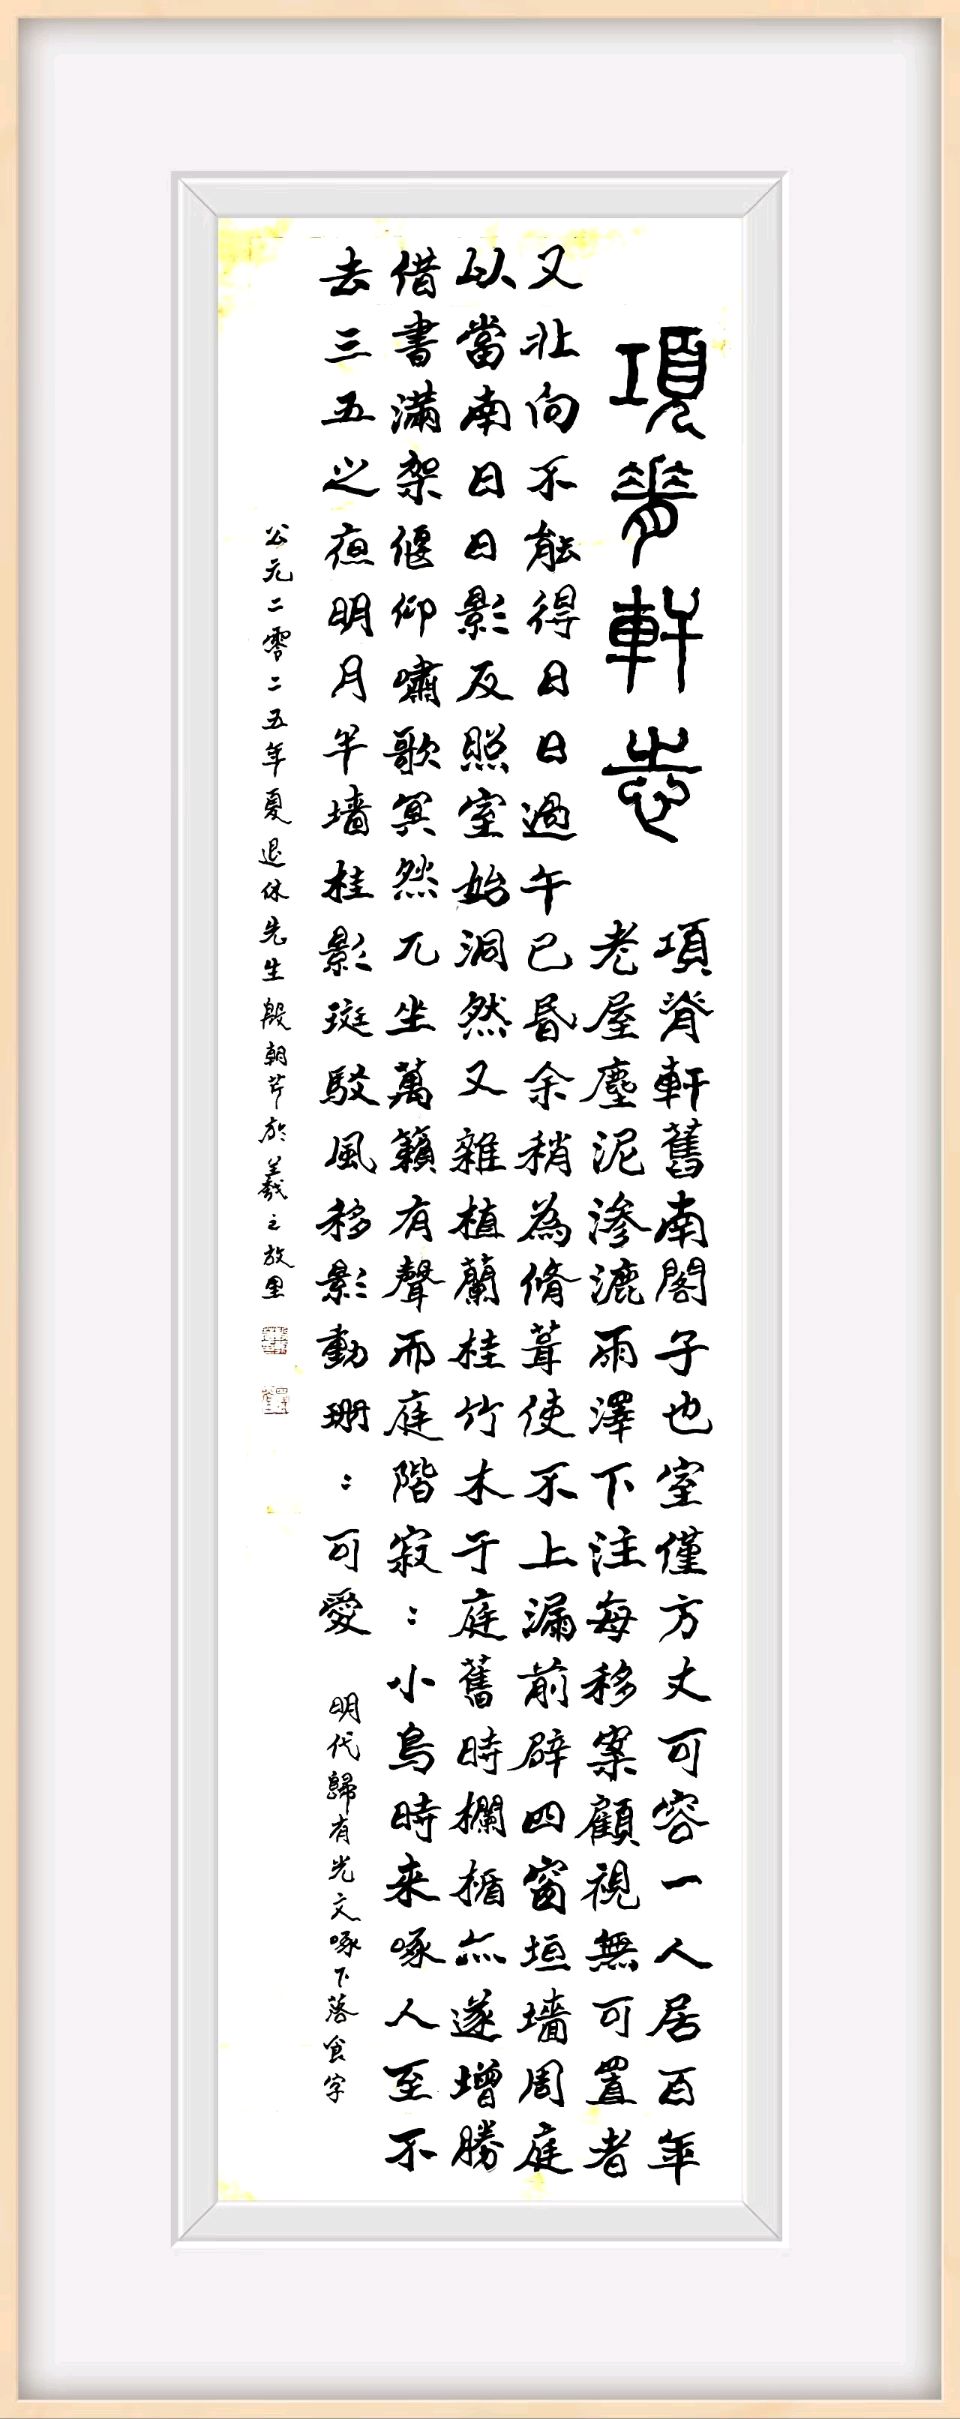 項脊軒志
項脊軒舊南閣子也室僅方丈可容一人居百年
老屋塵泥滲漉雨澤下注每移案顧視無可置者
又北向不能得日日過午已昏余稍為脩葺使不上漏前辟四窗垣墻周庭
以當南日日影反照室始洞然又雜植蘭桂竹木于庭舊時欄楯亦遂增勝
借書滿架偃仰嘯歌冥然兀坐萬籟有聲而庭階寂：小鳥時来啄人至不
去三五之夜明月半墻桂影斑駁風移影動珊：可愛
明代歸有光文啄下落食字
公元二零二五年夏退休先生殷朝芹於羲之故里